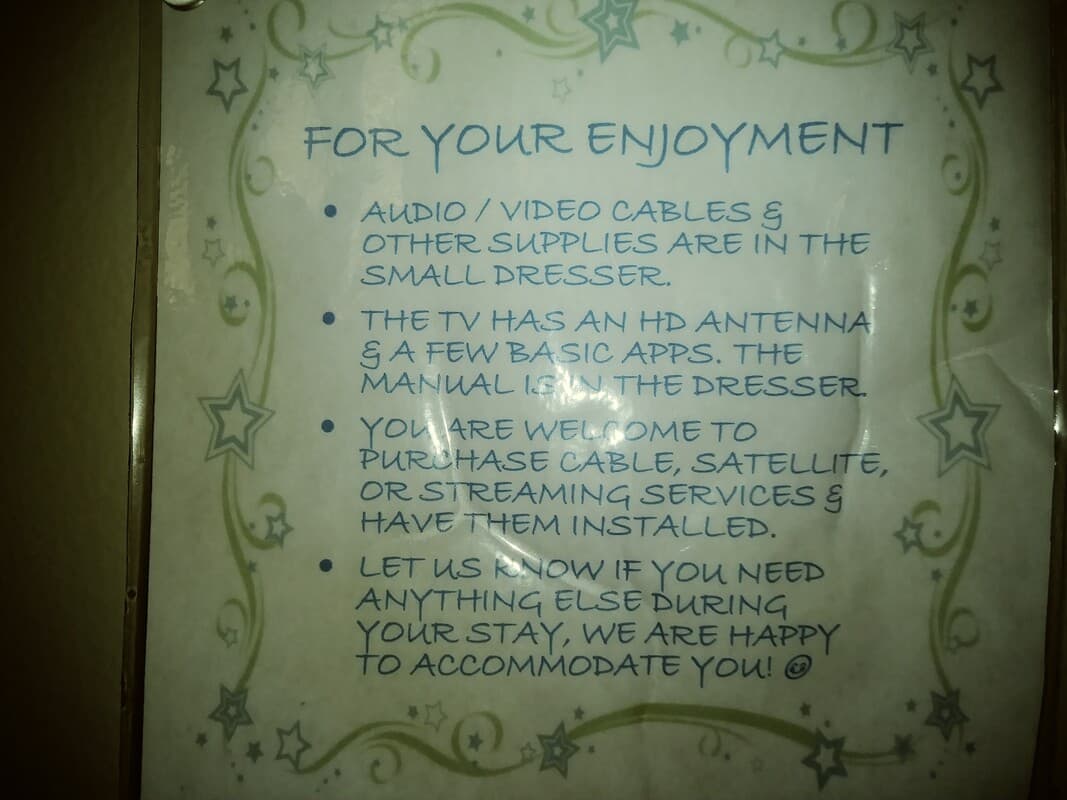 FOR YOUR ENJOYMENT
• AUDIO / VIDEO CABLES &
OTHER SUPPLIES ARE IN THE
SMALL DRESSER.
• THE TV HAS AN HD ANTENNA
& A FEW BASIC APPS. THE
MANUAL IS IN THE DRESSER.
• YOU ARE WELCOME TO
PURCHASE CABLE, SATELLITE,
OR STREAMING SERVICES &
HAVE THEM INSTALLED.
• LET US KNOW IF YOU NEED
ANYTHING ELSE DURING
YOUR STAY, WE ARE HAPPY
TO ACCOMMODATE YOU! ☺